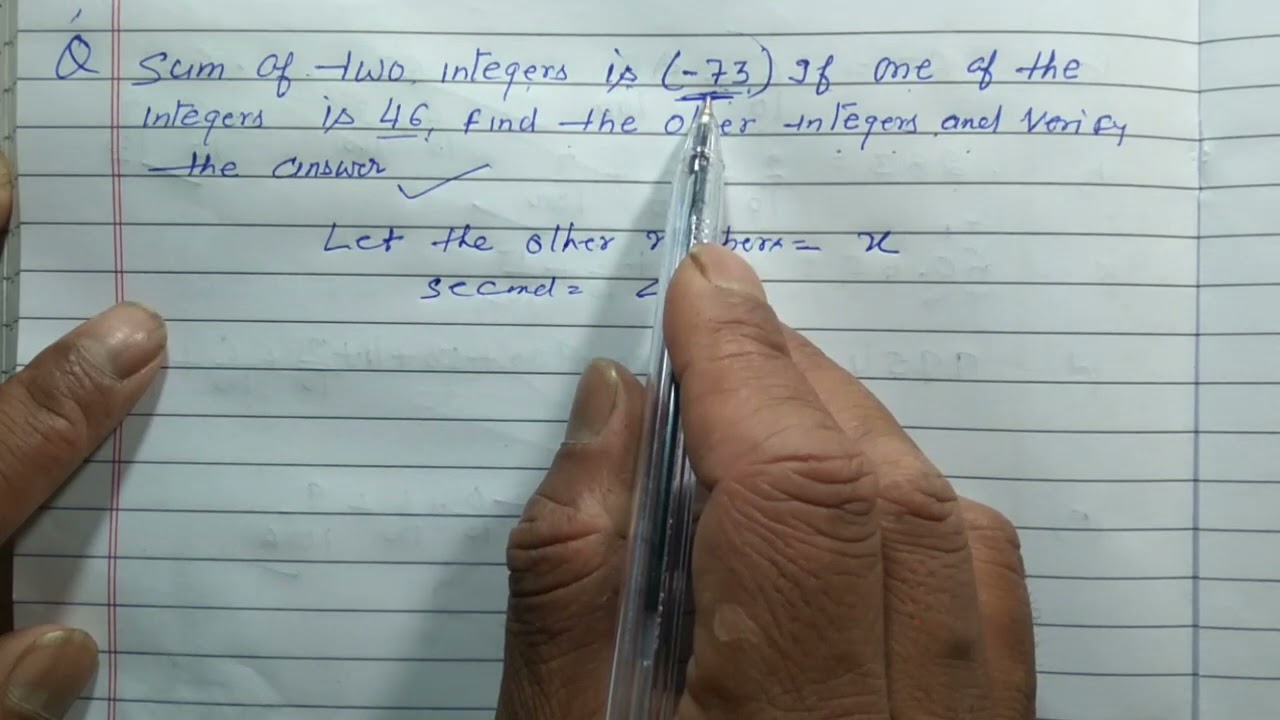 Q Sum of two integers is (-73) If one of the
integers is 46, find the other integers and verify
the answer
Let the other = x
second =